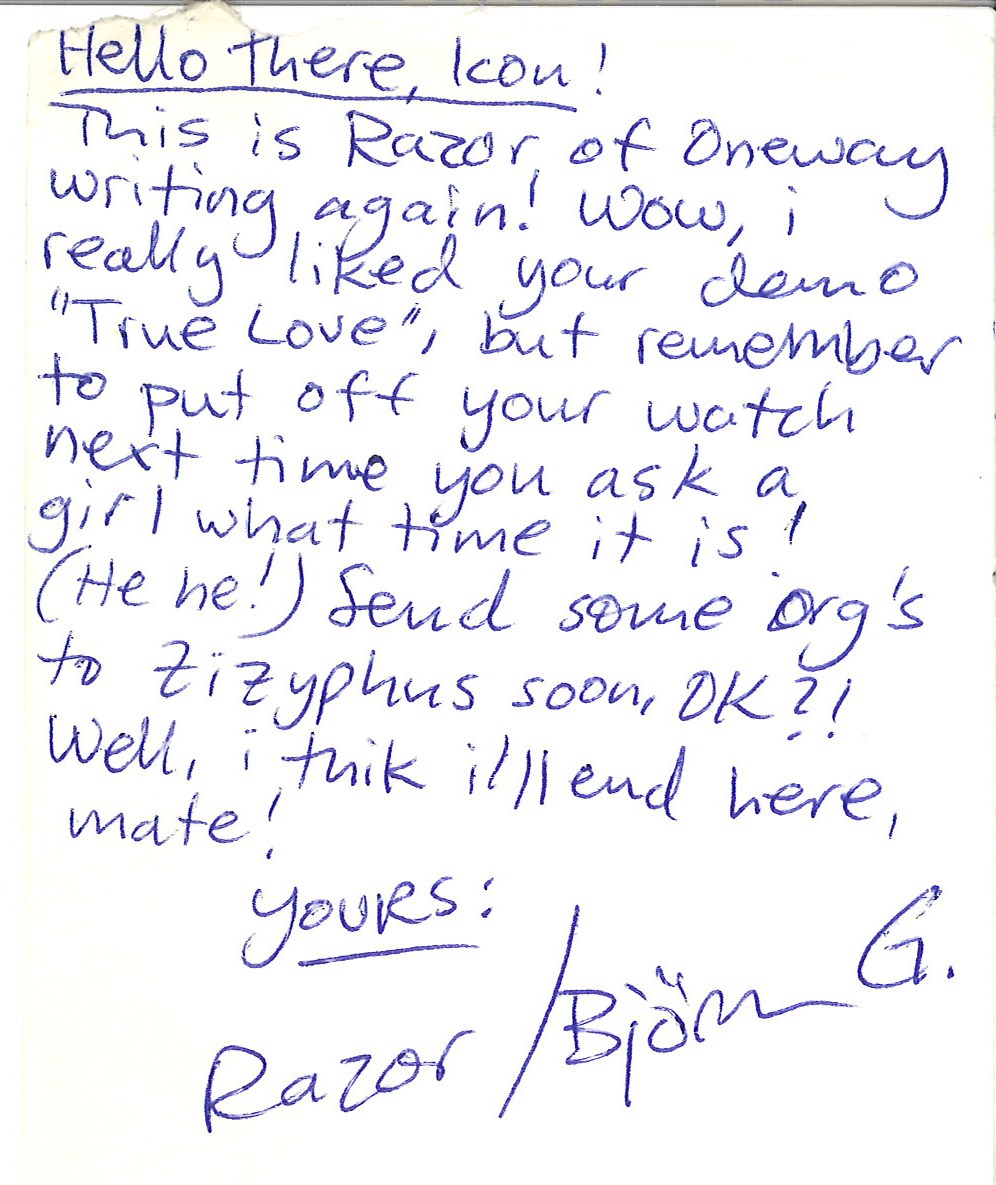 Hello there, Icon!
This is Razor of Oneway
writing again! Wow, i
really liked your demo
"True Love", but remember
to put off your watch
next time you ask a
girl what time it is!
(He he!) Send some org's
to Zizyphus soon, OK?!
Well, i thik i'll end here,
mate!
yours:
Razor /Björn G.